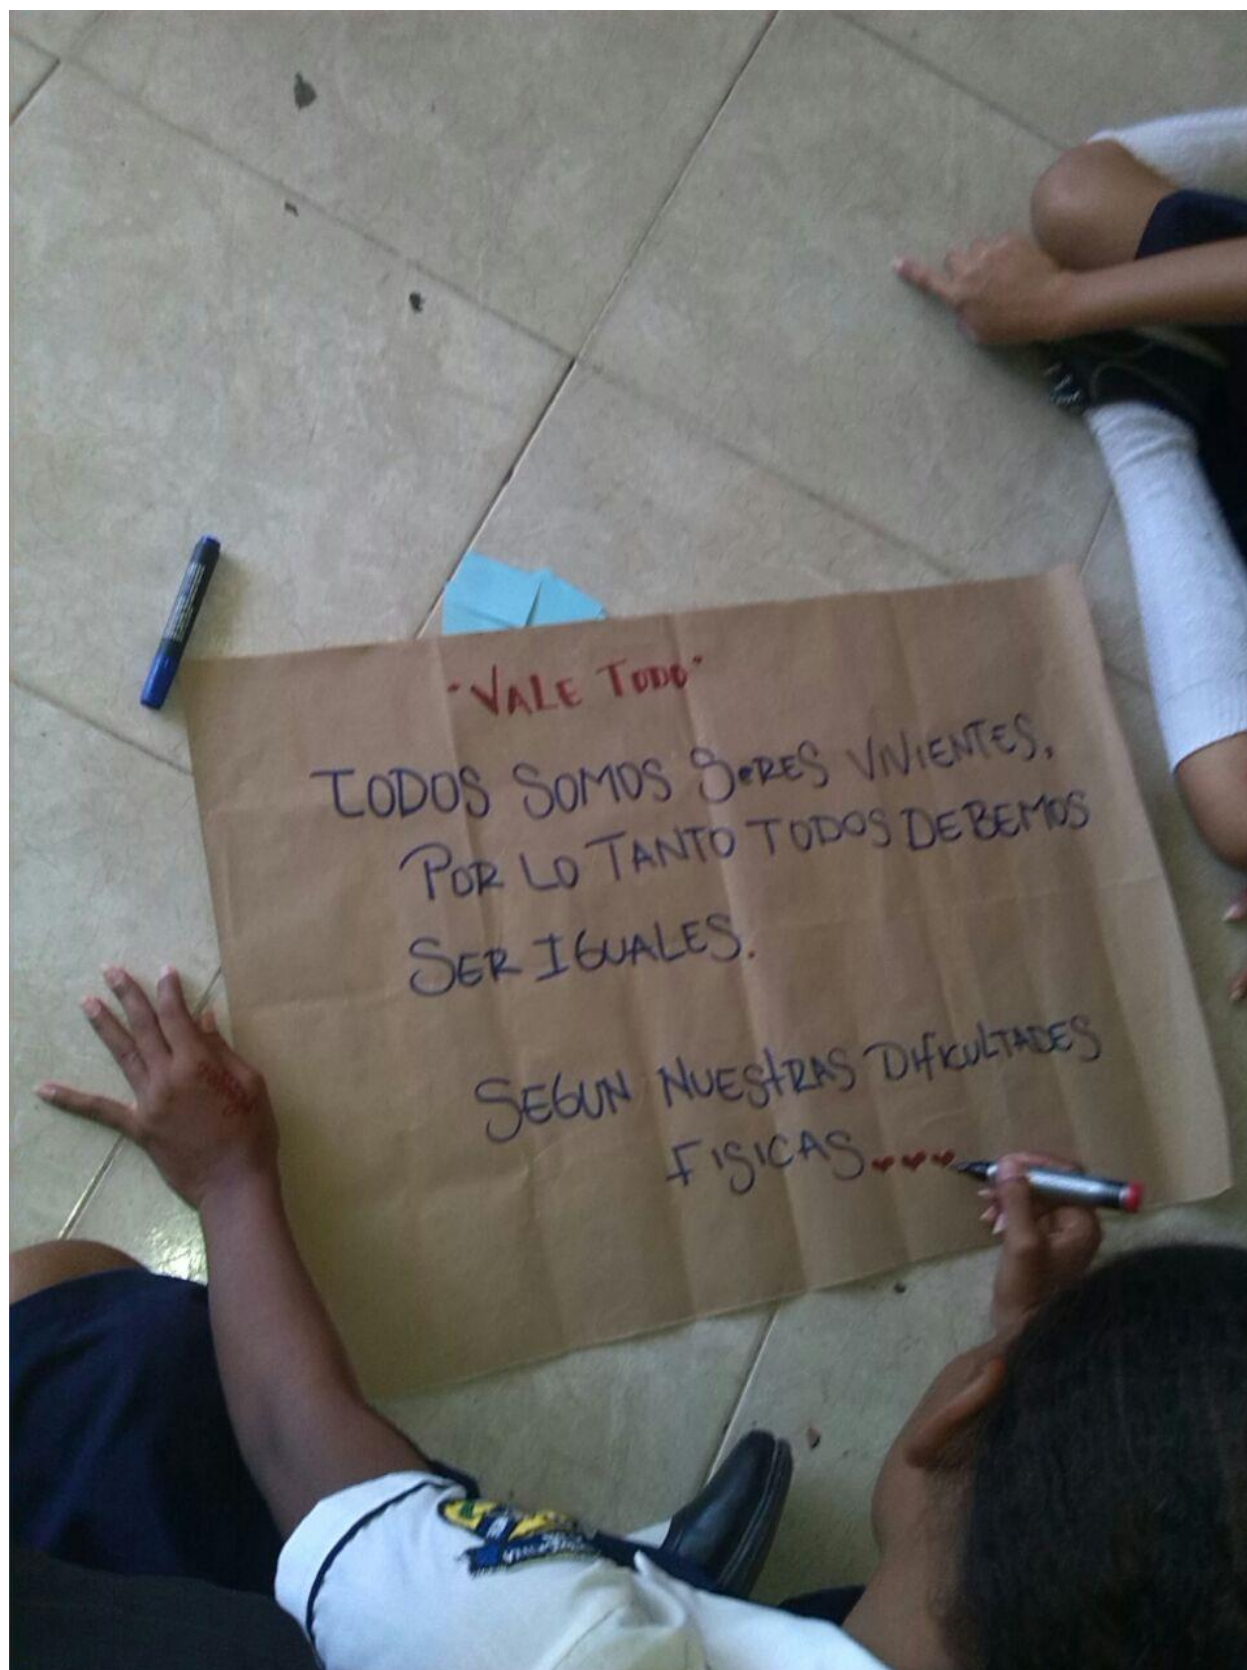 "VALE TODO"
TODOS SOMOS SERES VIVIENTES,
POR LO TANTO TODOS DEBEMOS
SER IGUALES.
SEGUN NUESTRAS DIFICULTADES
FISICAS...